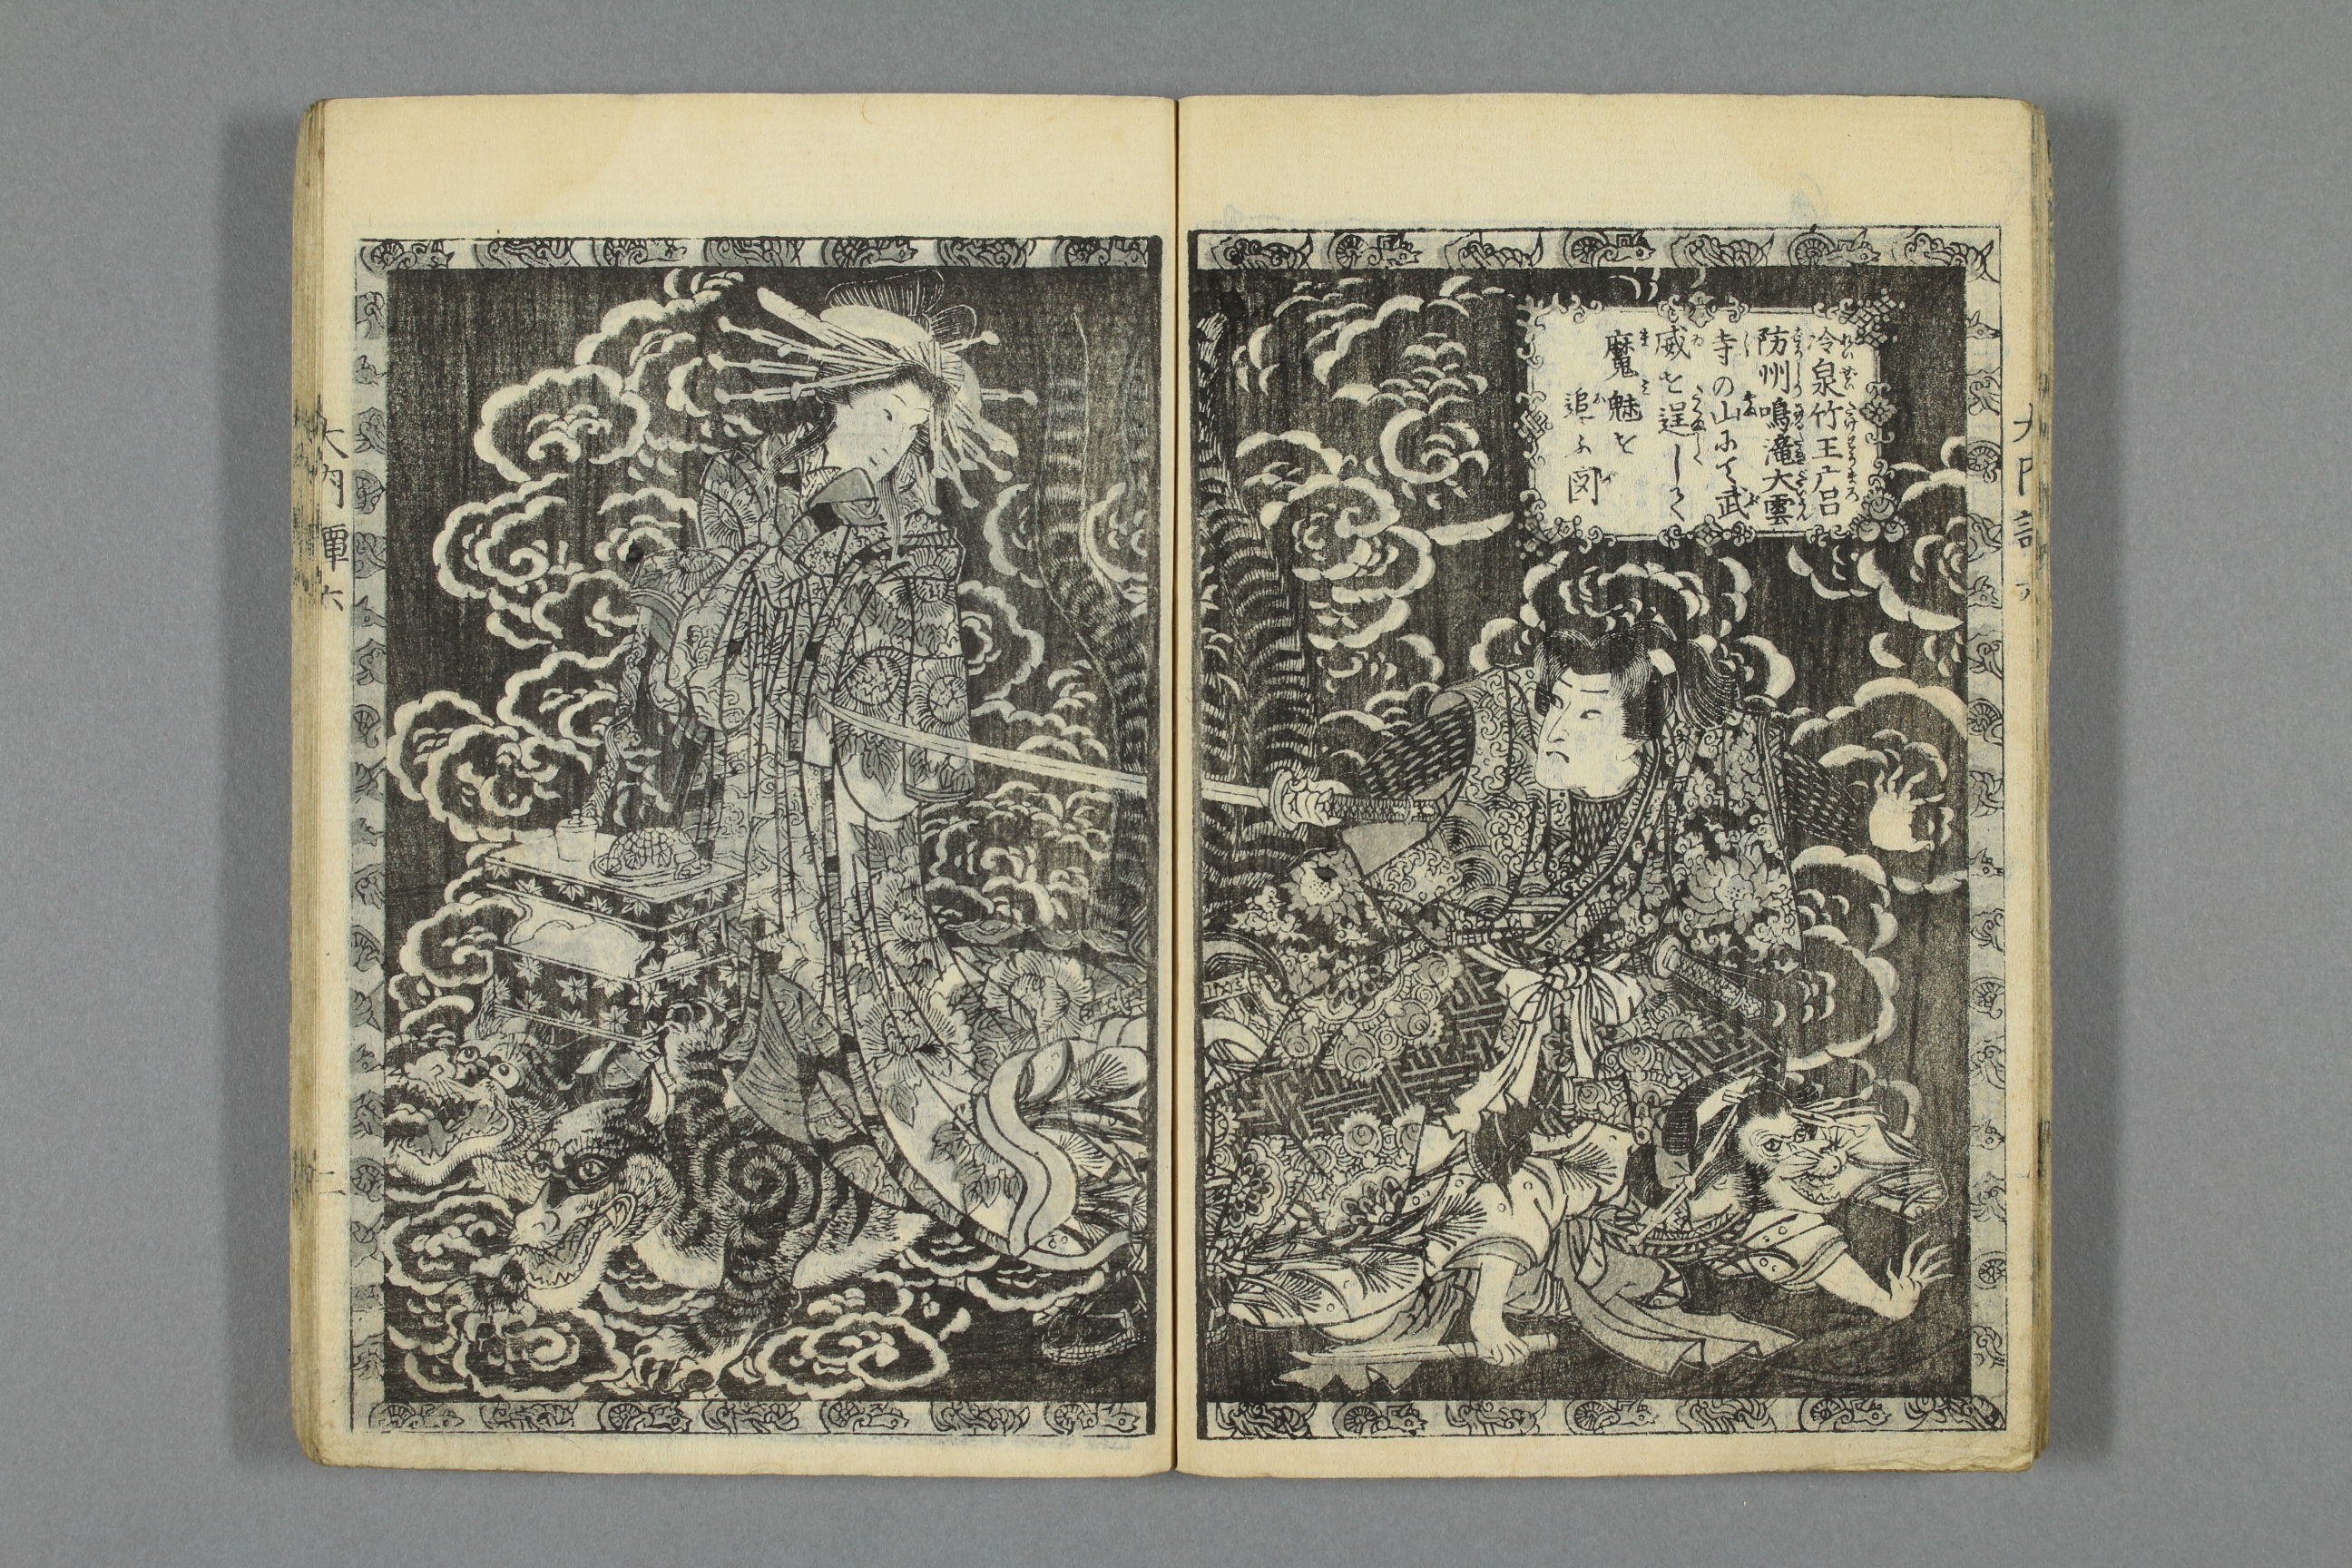 冷泉竹王广呂
防州鳴滝大雲
寺の山にて武
威を逞しく
魔魅を
追ふ図
大内譚六
二